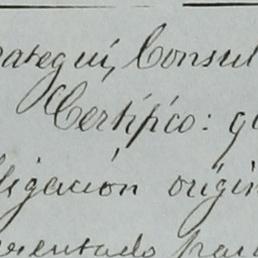 rategui, Consul
Certifico: qu
ligación origin
resentado para